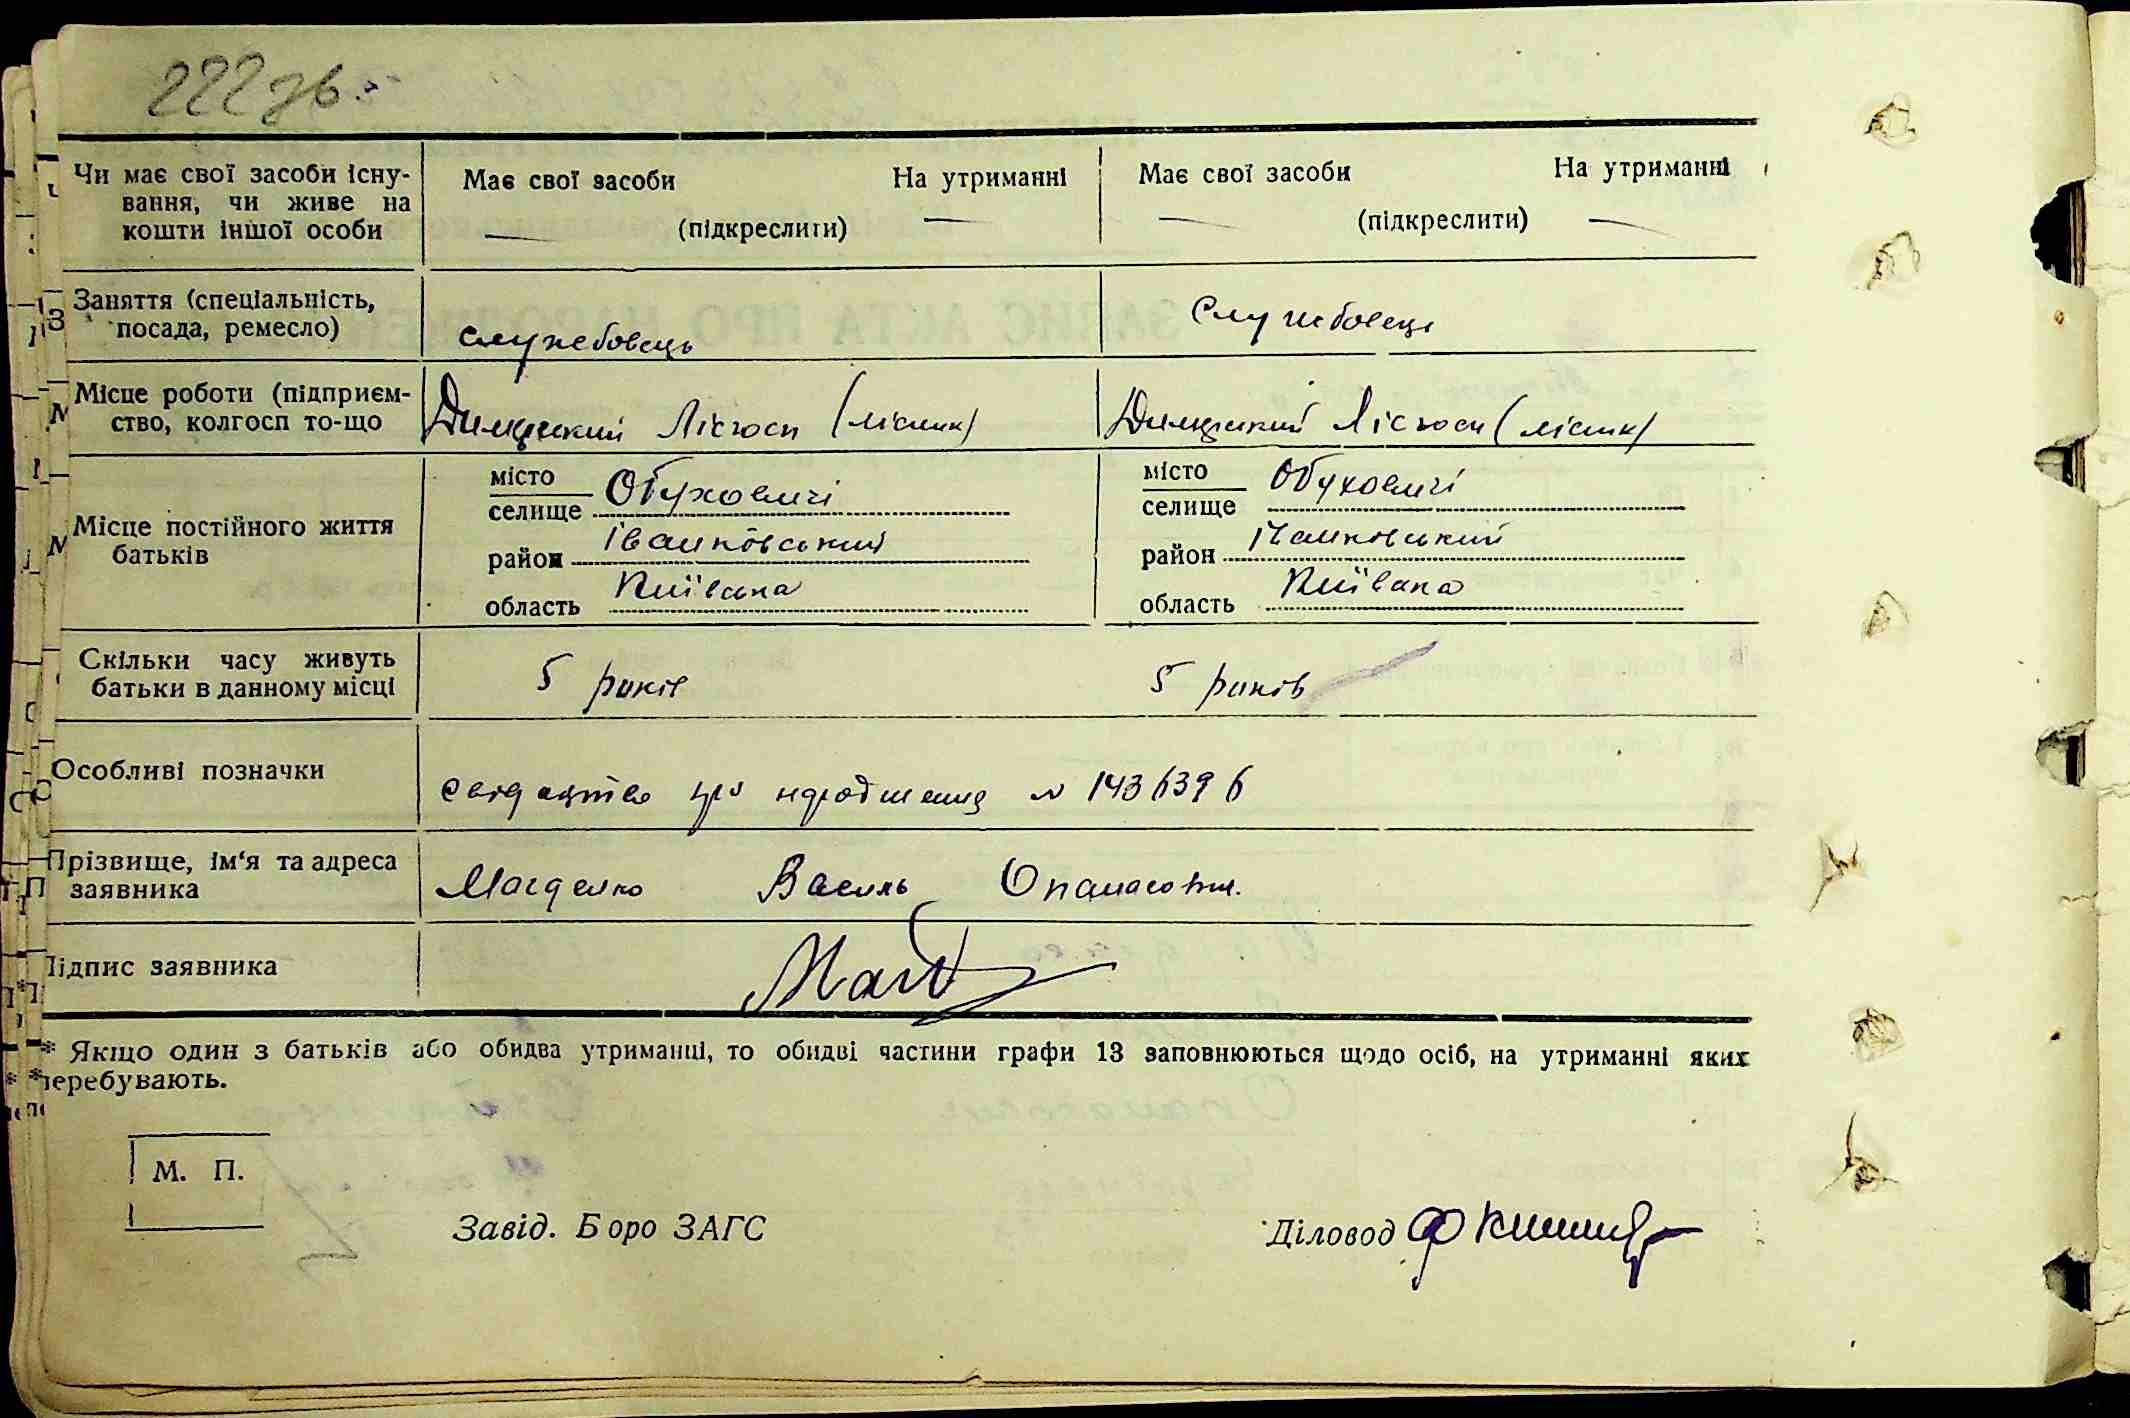 222 зв.
Чи має свої засоби існу-
вання, чи живе на
кошти іншої особи
Має свої засоби На утриманні
(підкреслити)
Має свої засоби На утриманні
(підкреслити)
Заняття (спеціальність,
посада, ремесло)
службовець
службовець
Місце роботи (підприєм-
ство, колгосп то-що
Димерский Лісгосп (лісник)
Димерский Лісгосп (лісник)
Місце постійного життя
батьків
місто
селище Обуховичі
район Іванковський
область Київська
місто
селище Обуховичі
район Іванковський
область Київська
Скільки часу живуть
батьки в данному місці
5 років
5 років
Особливі позначки
свідоцтво про народження № 1436396
Прізвище, ім'я та адреса
заявника
Василь Опанасович.
Підпис заявника
* Якщо один з батьків або обидва утриманці, то обидві частини графи 13 заповнюються щодо осіб, на утриманні яких
перебувають.
М. П.
Завід. Бюро ЗАГС
Діловод